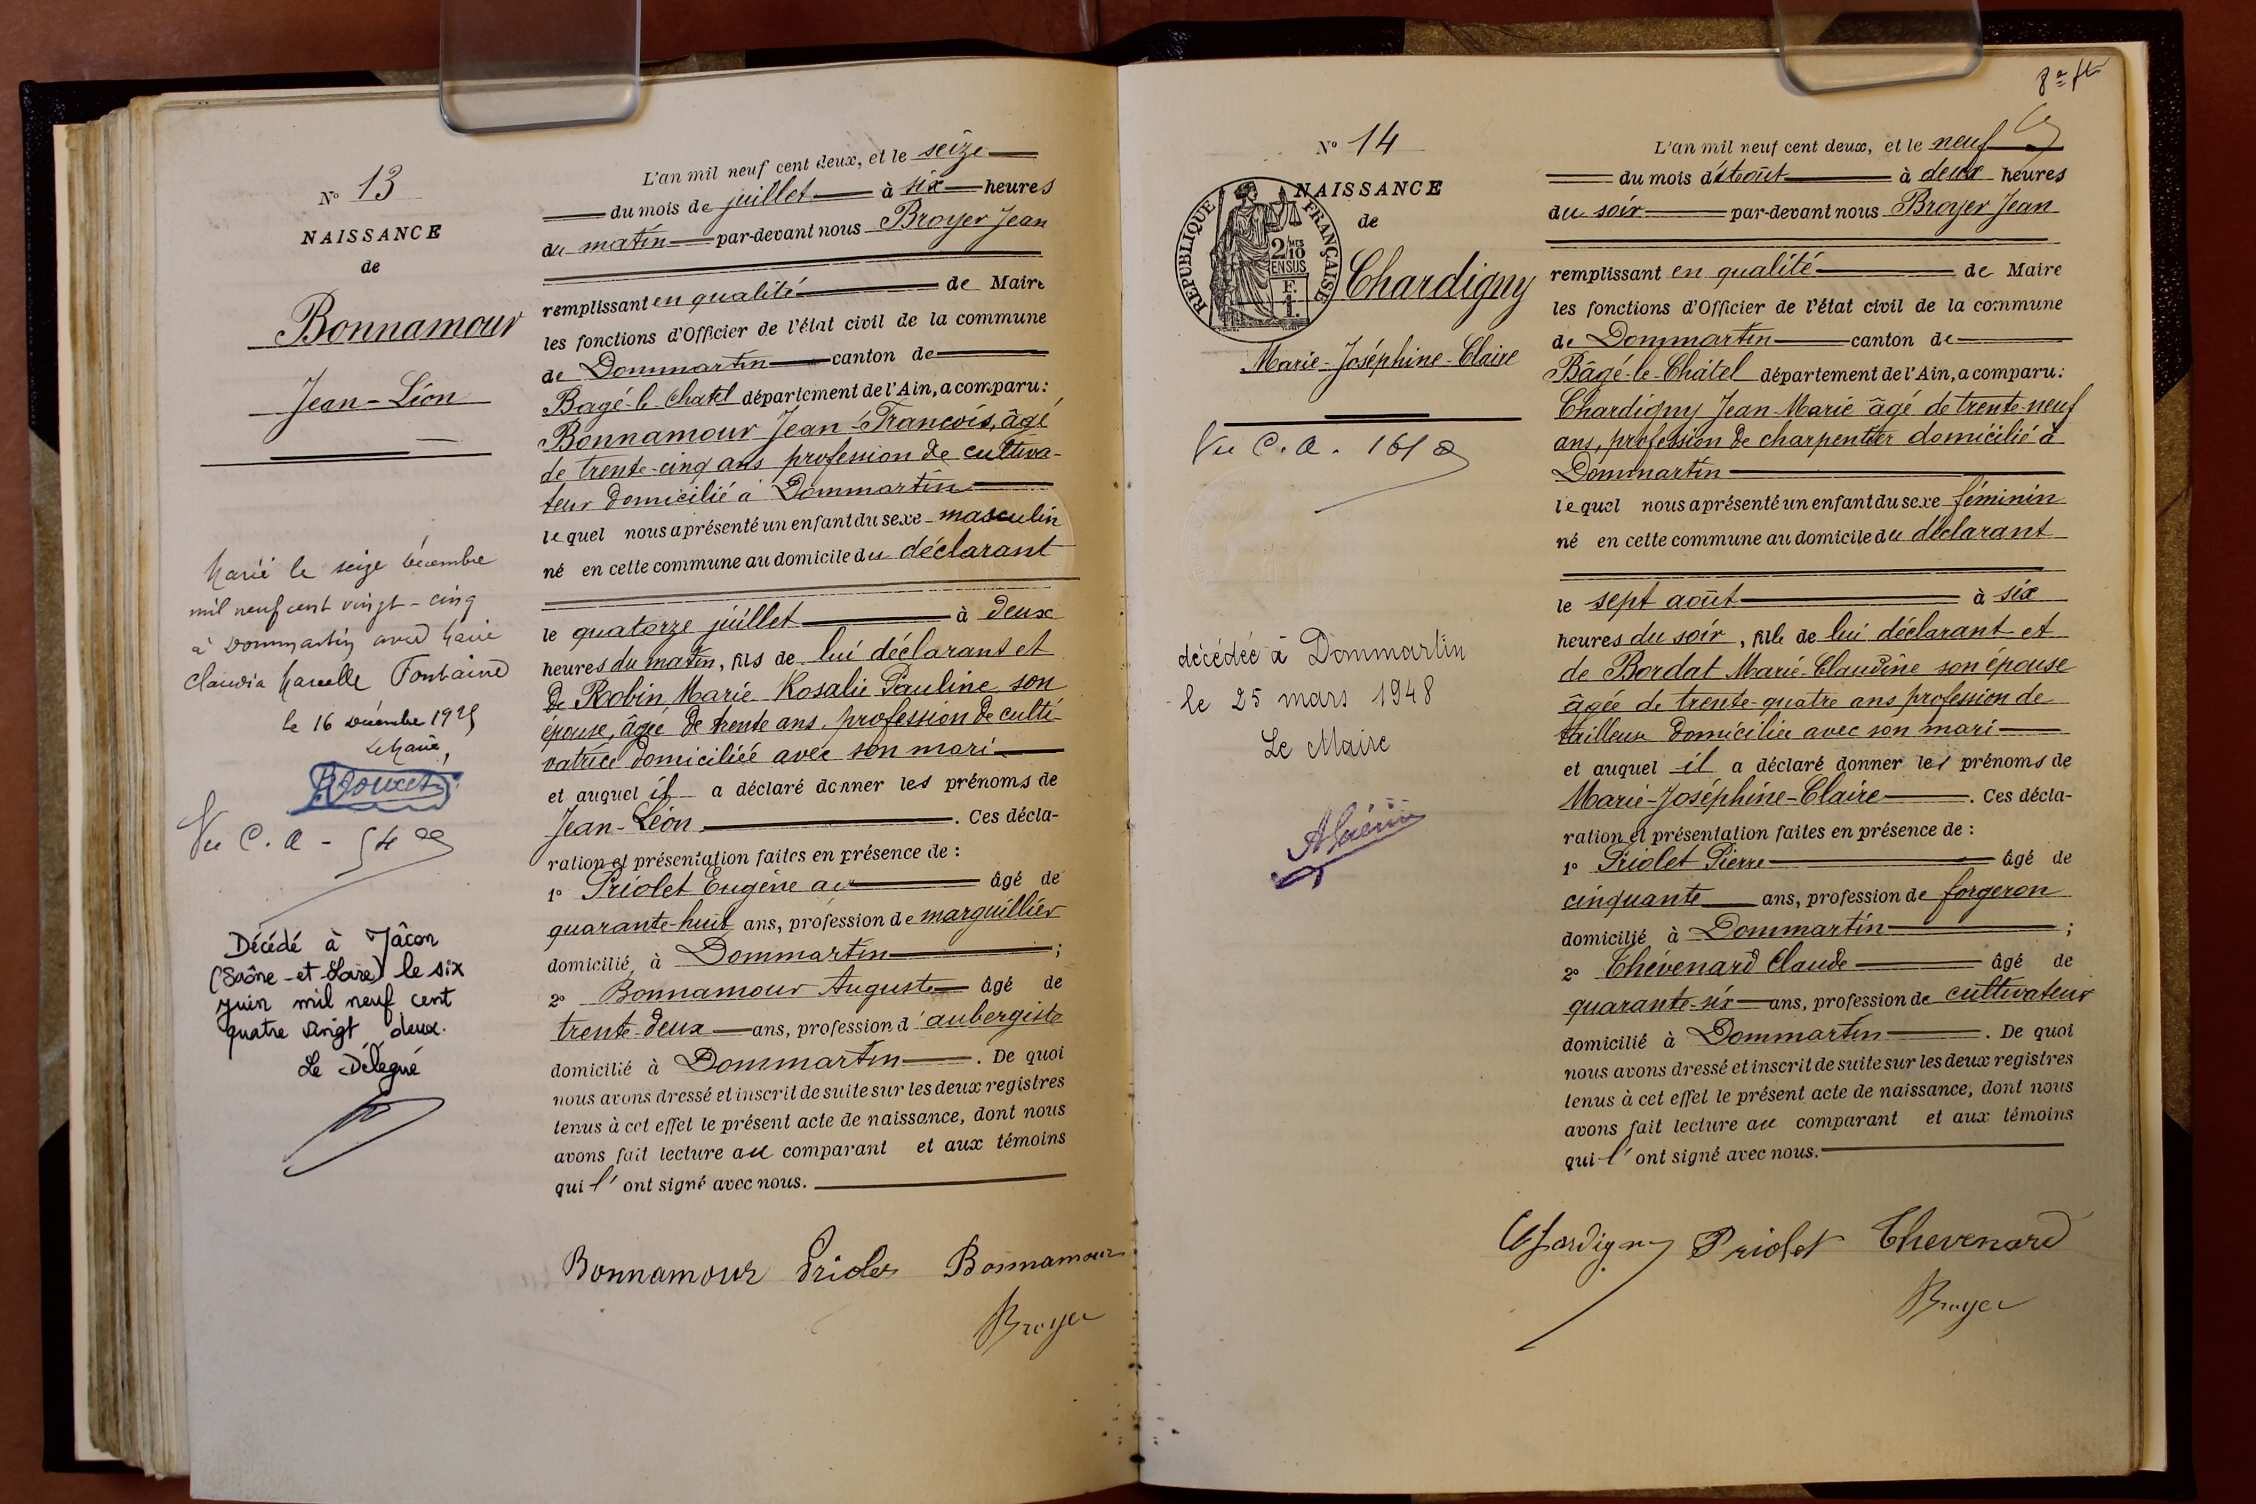 N° 13
NAISSANCE
de
Bonnamour
Jean-Léon
Marié le seize décembre
mil neuf cent vingt-cinq
à Dommartin avec Marie
Claudia Marcelle Fontaine
le 16 décembre 1925
Le Maire,
Vu C. A -
Décédé à Mâcon
(Saône-et-Loire) le six
juin mil neuf cent
quatre vingt deux.
Le Délégué
L'an mil neuf cent deux, et le seize
du mois de juillet à six heures
du matin par-devant nous Broyer Jean
remplissant en qualité de Maire
les fonctions d'Officier de l'état civil de la commune
de Dommartin canton de
Bagé-le-Chatel département de l'Ain, a comparu:
Bonnamour Jean-François, âgé
de trente-cinq ans profession de cultiva-
teur domicilié à Dommartin
lequel nous a présenté un enfant du sexe masculin
né en cette commune au domicile du déclarant
le quatorze juillet à deux
heures du matin, fils de lui déclarant et
de Robin Marie Rosalie Pauline son
épouse, âgée de trente ans profession de culti-
vatrice domiciliée avec son mari
et auquel il a déclaré donner les prénoms de
Jean-Léon . Ces décla-
ration et présentation faites en présence de :
1° Priolet Eugène âgé de
quarante-huit ans, profession de marguillier
domicilié à Dommartin ;
2° Bonnamour Auguste âgé de
trente-deux ans, profession d'aubergiste
domicilié à Dommartin . De quoi
nous avons dressé et inscrit de suite sur les deux registres
tenus à cet effet le présent acte de naissance, dont nous
avons fait lecture au comparant et aux témoins
qui l'ont signé avec nous.
Bonnamour Priolet Bonnamour
Broyer
N° 14
NAISSANCE
de
RÉPUBLIQUE FRANÇAISE
2/10 EN SUS
F. 1.
Chardigny
Marie-Joséphine-Claire
Vu C. A.
décédée à Dommartin
le 25 mars 1948
Le Maire
L'an mil neuf cent deux, et le neuf
du mois d'août à deux heures
du soir par-devant nous Broyer Jean
remplissant en qualité de Maire
les fonctions d'Officier de l'état civil de la commune
de Dommartin canton de
Bâgé-le-Châtel département de l'Ain, a comparu:
Chardigny Jean-Marie âgé de trente-neuf
ans, profession de charpentier domicilié à
Dommartin
lequel nous a présenté un enfant du sexe féminin
né en cette commune au domicile du déclarant
le sept août à six
heures du soir, fille de lui déclarant et
de Bordat Marie-Claudine son épouse
âgée de trente-quatre ans profession de
tailleur domiciliée avec son mari
et auquel il a déclaré donner les prénoms de
Marie-Joséphine-Claire . Ces décla-
ration et présentation faites en présence de :
1° Priolet Pierre âgé de
cinquante ans, profession de forgeron
domicilié à Dommartin ;
2° Thévenard Claude âgé de
quarante-six ans, profession de cultivateur
domicilié à Dommartin . De quoi
nous avons dressé et inscrit de suite sur les deux registres
tenus à cet effet le présent acte de naissance, dont nous
avons fait lecture au comparant et aux témoins
qui l'ont signé avec nous.
Chardigny Priolet Thevenard
Broyer